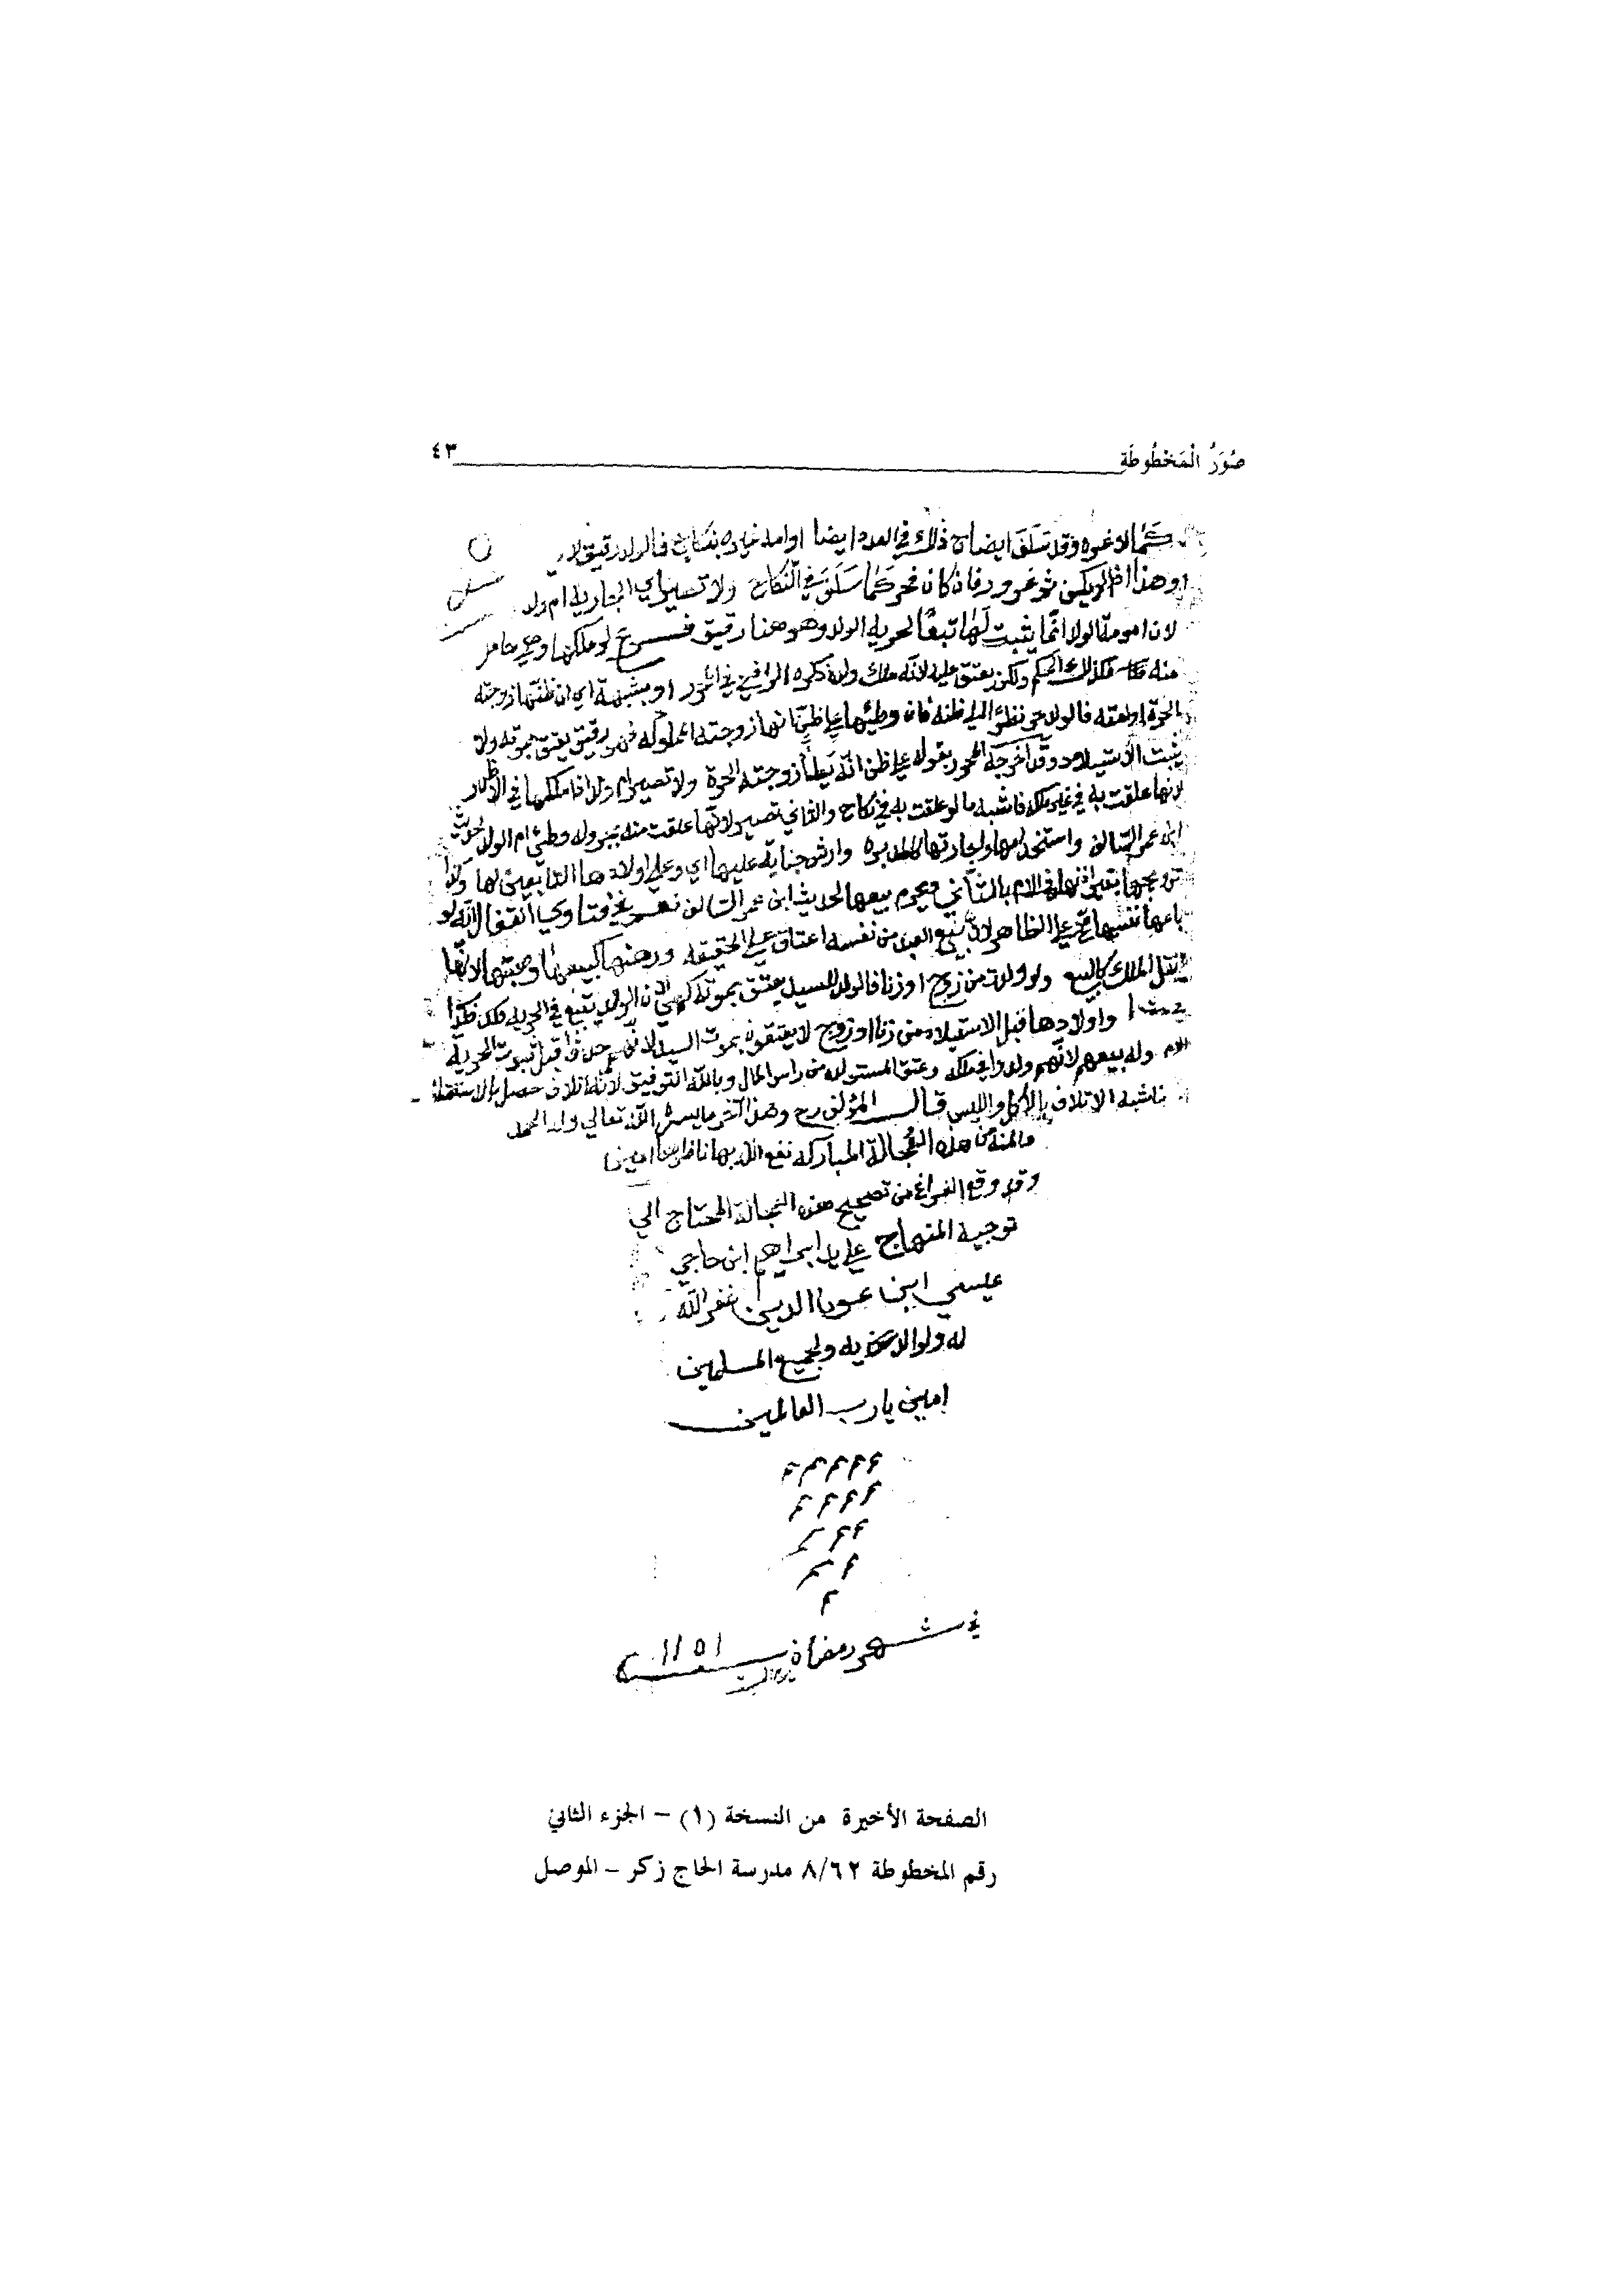 صُوَرُ الْمَخْطُوطَةِ ٤٣
وقد سلف ايضاح ذلك في العدد ايضا او امة غيره بنكاح فالولد رقيق
وهذا اذا لم يكن ثم غرور فان كان فحر كما سلف في النكاح ولا تصير اي الجارية ام ولد
لان امومة الولد انما يثبت لها تبعًا لحرية الولد وهو هنا رقيق فرع لو ملكها وهي حامل
منه فكذلك الحكم ولكن يعتق عليه لانه ملك ولده ذكره الرافعي في او بشبهة اي ان ظنها زوجته
الحرة او امته فالولد حر نظرًا الي ظنه فان وطئها على ظن انها زوجته المملوكة فهو رقيق يعتق بموته ولا
يثبت الاستيلاد وقد اخرجه المحرر بقوله على ظن انه يطأ زوجته الحرة ولا تصير ام ولد اذا ملكها في الاظهر
لانها علقت به في غير ملكه فاشبه ما لو علقت به في نكاح والثاني تصير لانها علقت منه بحر وله وطئ ام الولد لحديث
ابن عمر السالف واستخدامها واجارتها كالمدبرة وارش جناية عليها اي وعلى اولادها التابعين لها وكذا
تزويجها بغير اذنها في الاصح ويحرم بيعها لحديث ابن عمر السالف نعم في فتاوي القفال انه لو
باعها نفسها صح على الظاهر لان بيع العبد من نفسه اعتاق على الحقيقة ورهنها كبيعها وهبتها لانها
تنقل الملك كالبيع ولو ولدت من زوج او زنا فالولد للسيد يعتق بموته كهي لان الولد يتبع في الحرية فكذا
واولادها قبل الاستيلاد من زنا او زوج لا يعتقون بموت السيد لانهم حدثوا قبل ثبوت الحرية
للام وله بيعهم لانهم ولدوا في ملكه وعتق المستولدة من راس المال وبالله التوفيق لانه اتلاف حصل بالاستمتاع
فاشبه الاتلاف بالاكل واللبس قال المؤلف رح وهذا آخر ما يسره الله تعالي وله الحمد
والمنة من هذه العُجالة المباركة نفع الله بها امين
وقد وقع الفراغ من تصحيح هذه العجالة المحتاج الي
توجيه المنهاج على يد ابراهيم ابن حاجي
عيسي ابن الدين غفر الله
له ولوالديه ولجميع المسلمين
امين يارب العالمين
م م م م م
م م م م
م م م
م م
م
في شهر رمضان سنة ١١٥١
الصفحة الأخيرة من النسخة (١) – الجزء الثاني
رقم المخطوطة ٨/٦٢ مدرسة الحاج زكر – الموصل